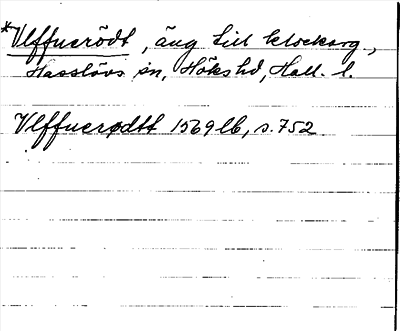 *Vlffuerödt, äng till klockarg.,
Hasslövs sn, Höks hd, Hall. l.
Vlffuerødtt 1569 lb, s. 752